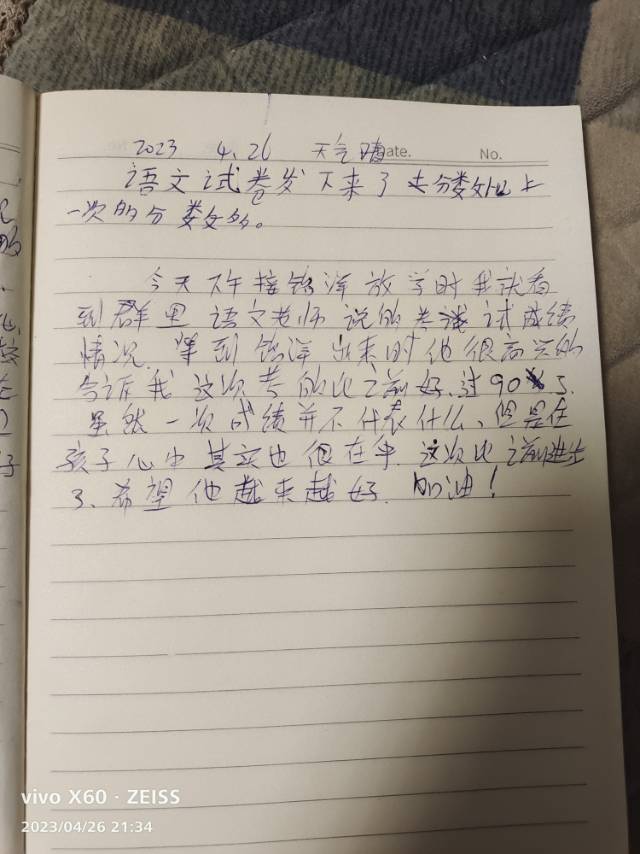 2023 4.26 天气晴 Date. No.
语文试卷发下来了 分数比上
一次的分数多。
今天下午接铭洋放学时我就看
到群里语文老师说的考试成绩
情况. 等到铭洋出来时他很高兴的
告诉我这次考的比之前好、过90了.
虽然一次成绩并不代表什么、但是在
孩子心中其实也很在乎. 这次比之前进步
了、希望他越来越好. 加油!
vivo X60 · ZEISS
2023/04/26 21:34